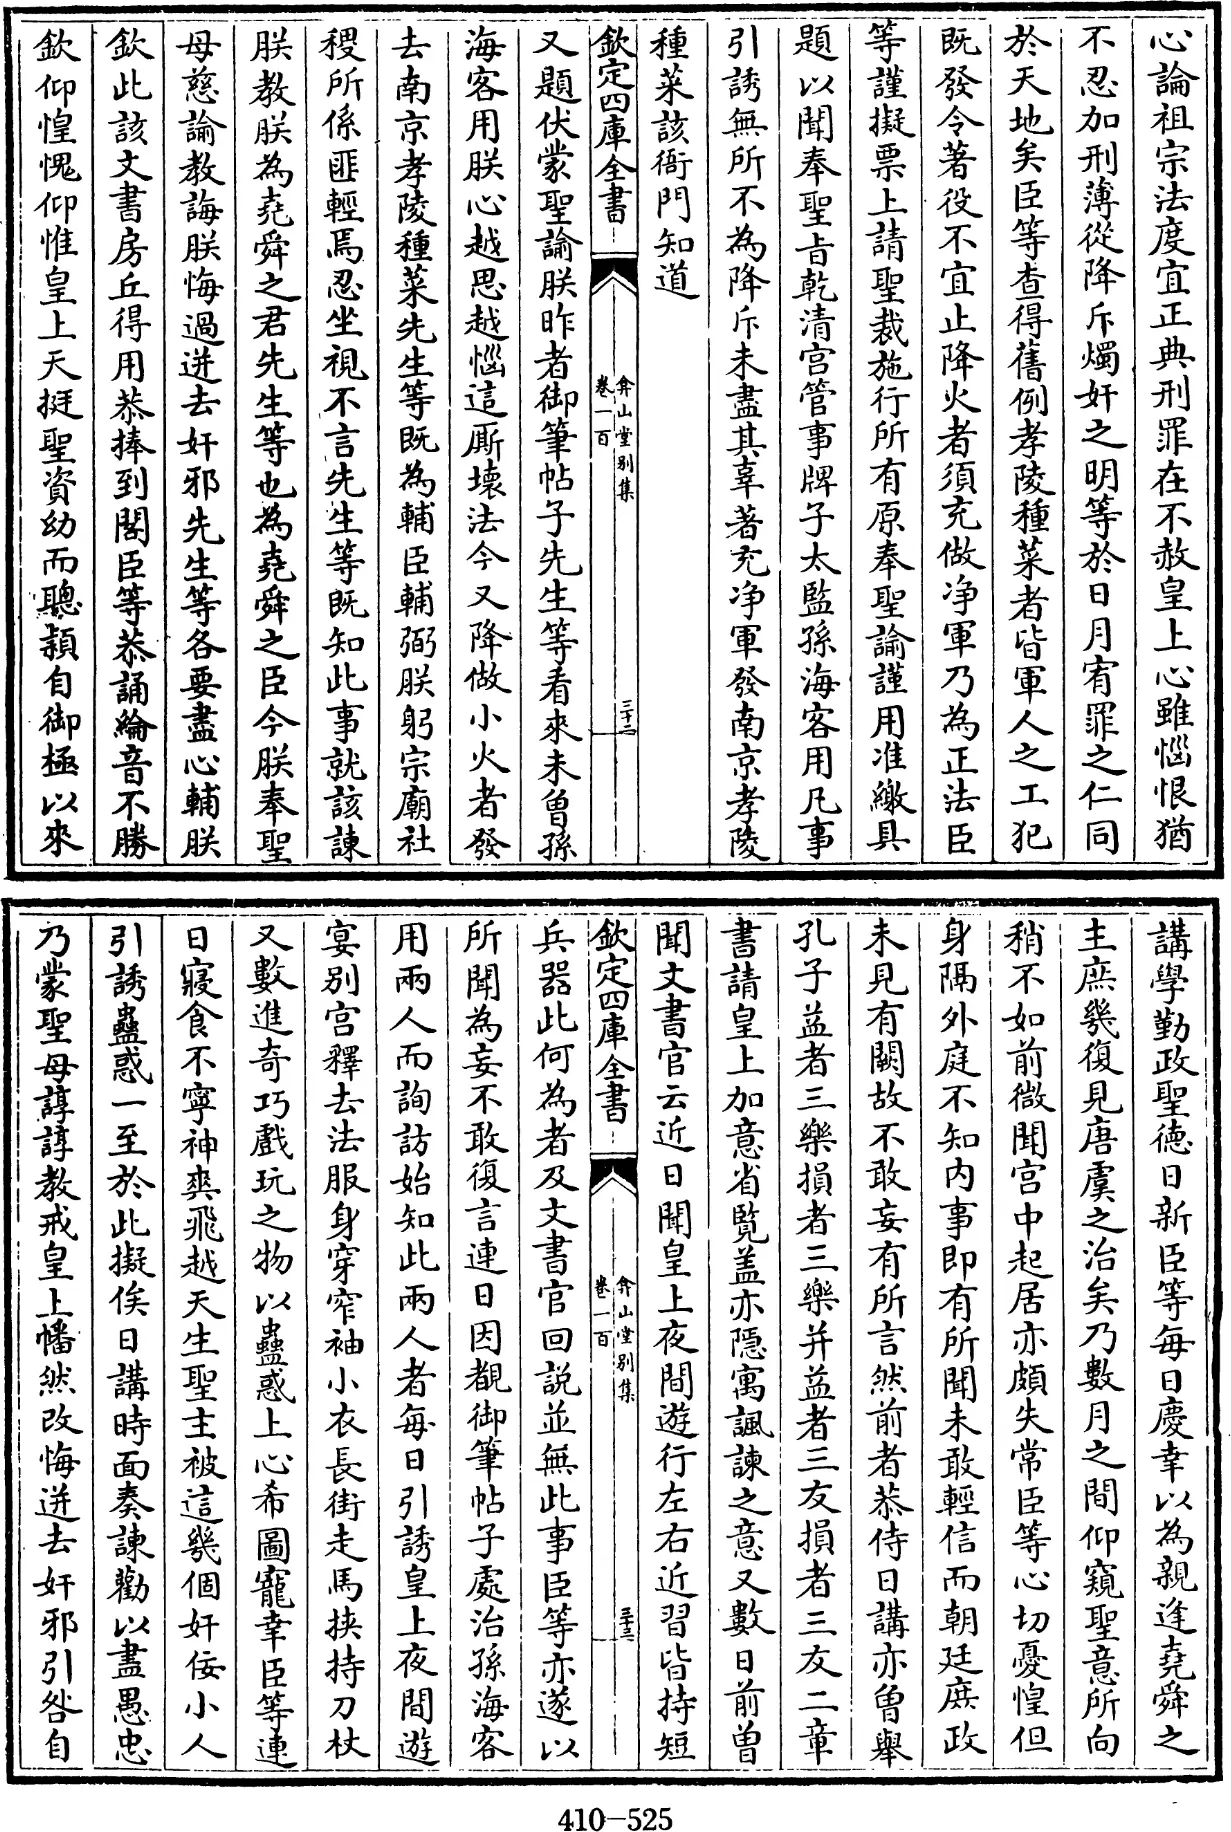 心論祖宗法度宜正典刑罪在不赦皇上心雖惱恨猶
不忍加刑薄從降斥燭奸之明等於日月宥罪之仁同
於天地矣臣等查得舊例孝陵種菜者皆軍人之工犯
既發令著役不宜止降火者須充做净軍乃為正法臣
等謹擬票上請聖裁施行所有原奉聖諭謹用准繳具
題以聞奉聖旨乾清宫管事牌子太監孫海客用凡事
引誘無所不為降斥未盡其辜著充净軍發南京孝陵
種菜該衙門知道
欽定四庫全書
弇山堂别集
卷一百
三十二
又題伏蒙聖諭朕昨者御筆帖子先生等看來未曾孫
海客用朕心越思越惱這厮壞法今又降做小火者發
去南京孝陵種菜先生等既為輔臣輔弼朕躬宗廟社
稷所係匪輕焉忍坐視不言先生等既知此事就該諫
朕教朕為堯舜之君先生等也為堯舜之臣今朕奉聖
母慈諭教誨朕悔過迸去奸邪先生等各要盡心輔朕
欽此該文書房丘得用恭捧到閣臣等恭誦綸音不勝
欽仰惶愧仰惟皇上天挺聖資幼而聰頴自御極以來
講學勤政聖德日新臣等每日慶幸以為親逢堯舜之
主庶幾復見唐虞之治矣乃數月之間仰窺聖意所向
稍不如前微聞宫中起居亦頗失常臣等心切憂惶但
身隔外庭不知内事即有所聞未敢輕信而朝廷庶政
未見有闕故不敢妄有所言然前者恭侍日講亦曾舉
孔子益者三樂損者三樂并益者三友損者三友二章
書請皇上加意省覧盖亦隱寓諷諫之意又數日前曾
聞文書官云近日聞皇上夜間遊行左右近習皆持短
欽定四庫全書
弇山堂别集
卷一百
三十三
兵器此何為者及文書官回説並無此事臣等亦遂以
所聞為妄不敢復言連日因覩御筆帖子處治孫海客
用兩人而詢訪始知此兩人者每日引誘皇上夜間遊
宴别宫釋去法服身穿窄袖小衣長街走馬挾持刀杖
又數進奇巧戲玩之物以蠱惑上心希圖寵幸臣等連
日寢食不寧神爽飛越天生聖主被這幾個奸佞小人
引誘蠱惑一至於此擬俟日講時面奏諫勸以盡愚忠
乃蒙聖母諄諄教戒皇上幡然改悔迸去奸邪引咎自
410-525